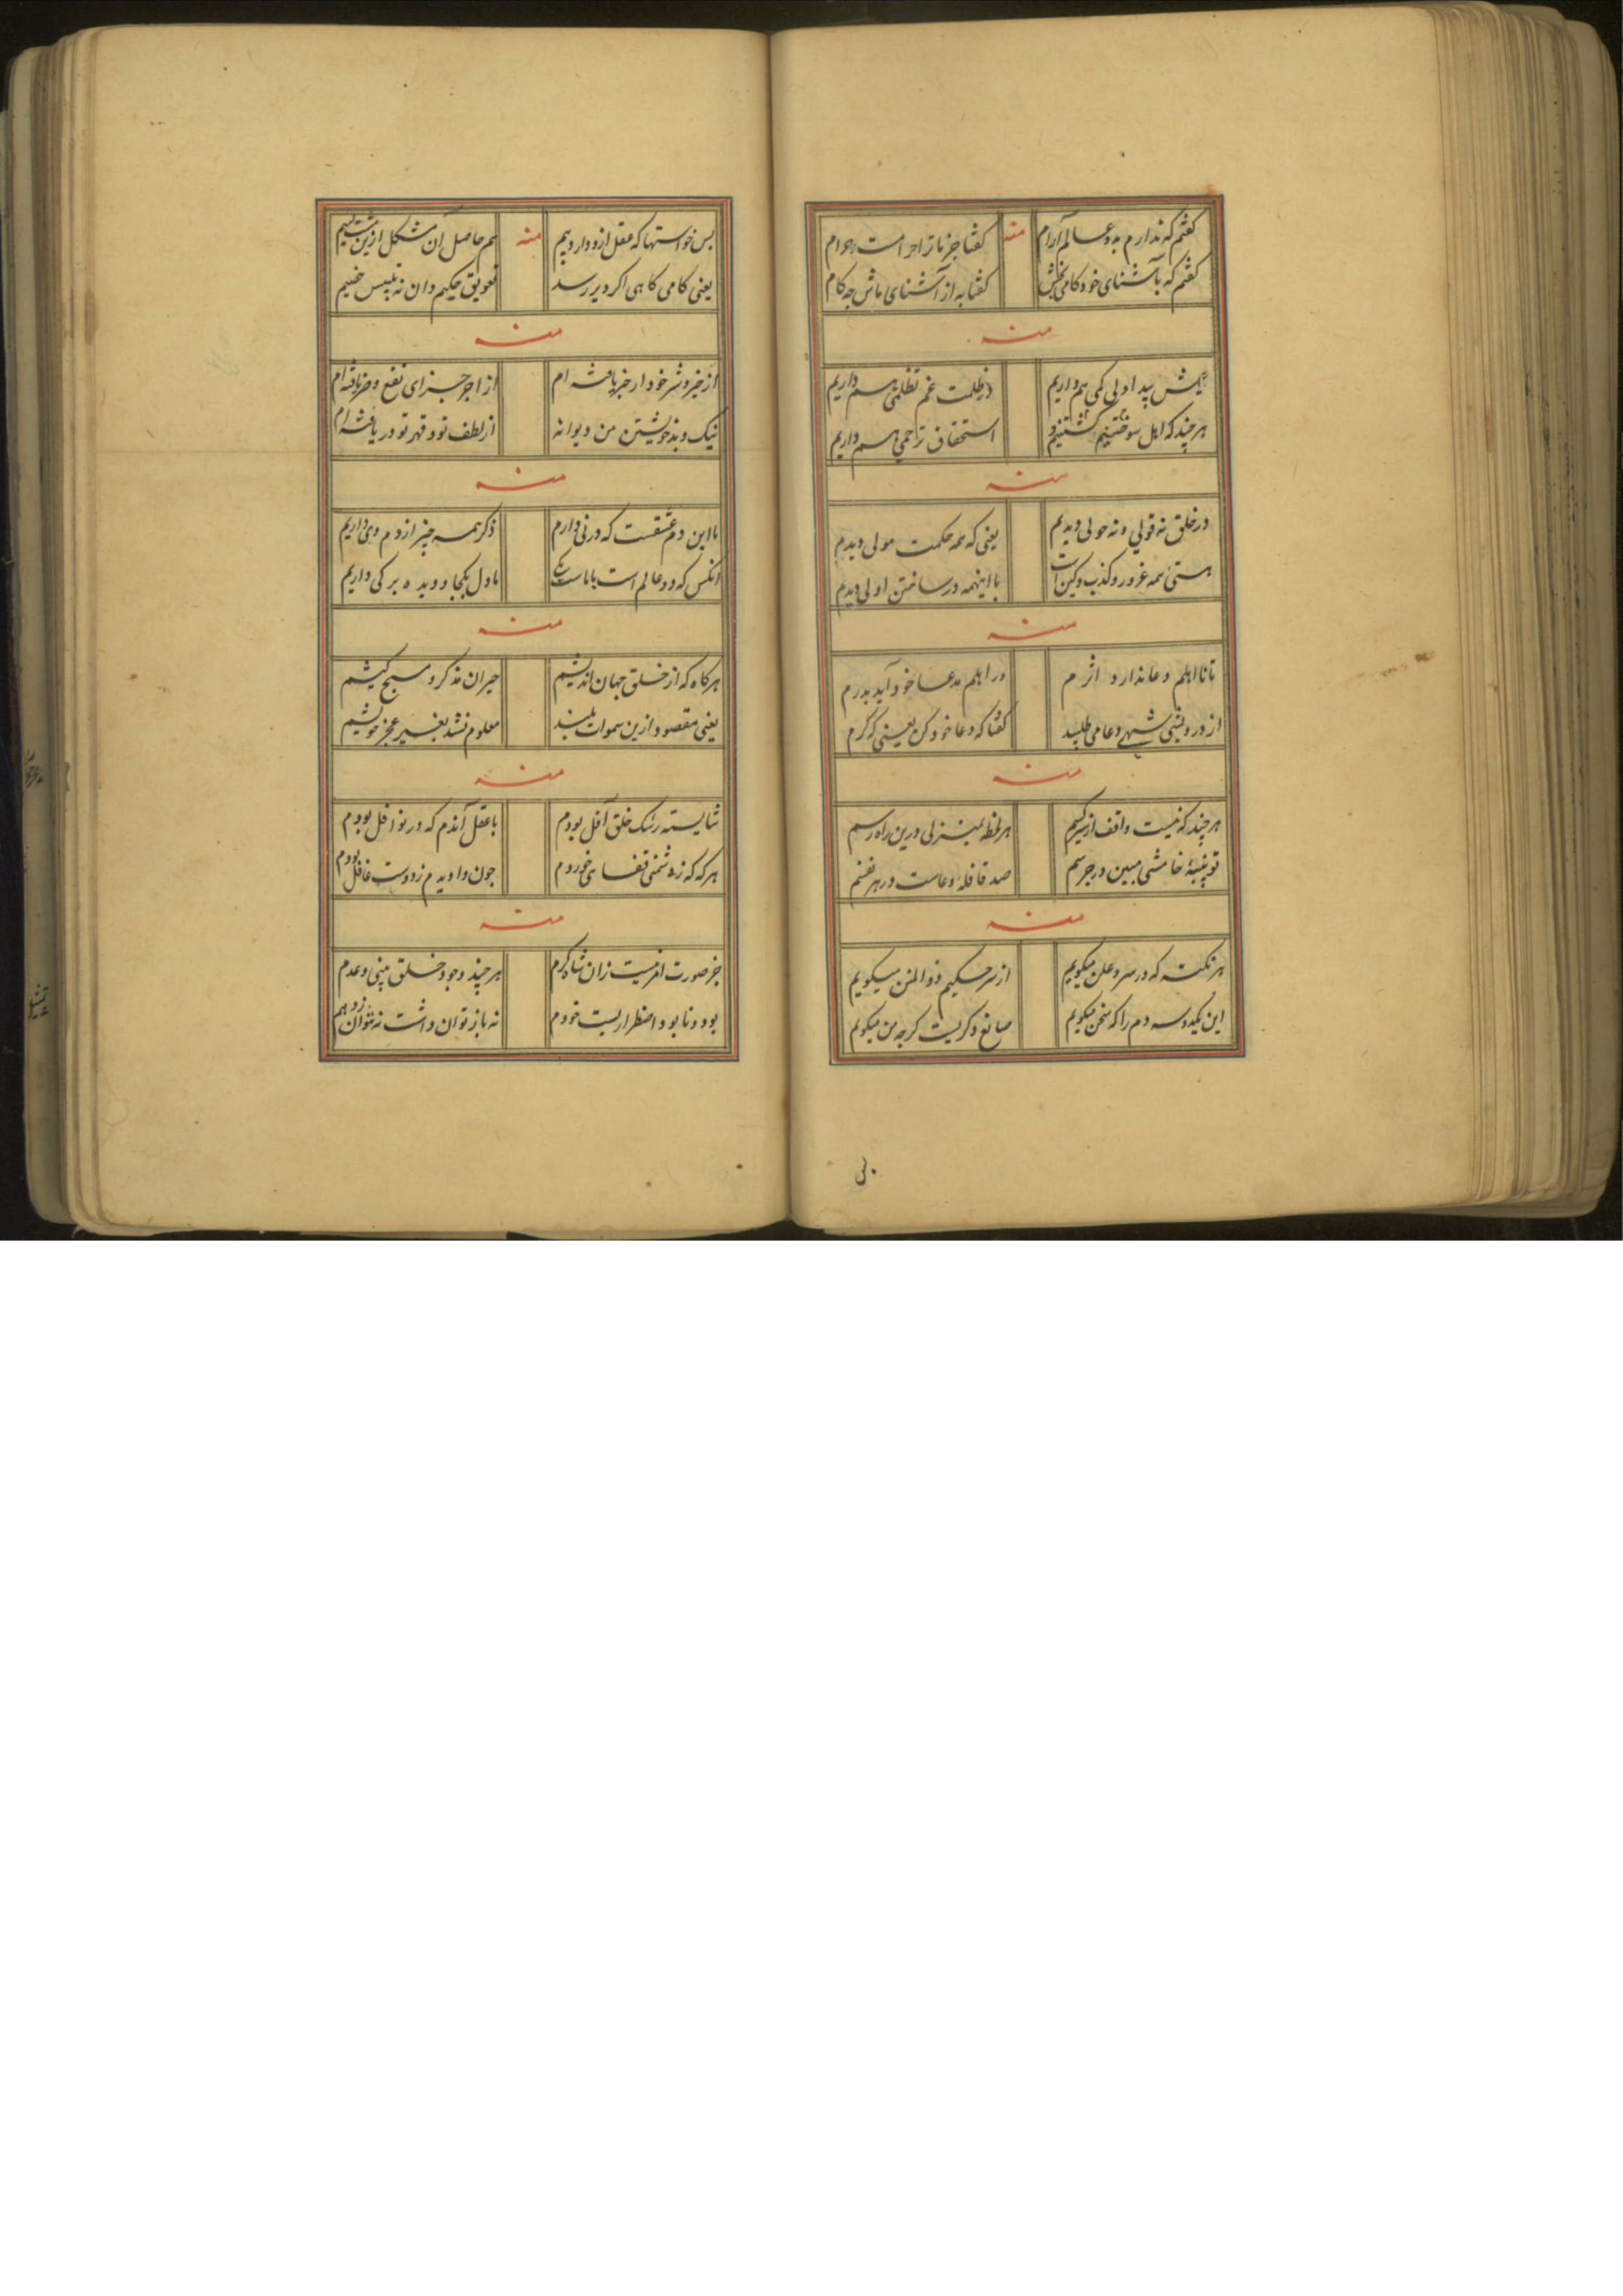 گفتم که ندارم به دو عالم آرام منه گفتا جز ما ترا حرامست حرام
گفتم که بآشنای خود کامی بخش گفتا به از آشنای ماش چه کام
منه
بیش پیدا ولی کمی هم داریم در ظلمت غم تظلمی هم داریم
هرچند که اهل سوختنیم و کشتنیم استحقاق تراحمی هم داریم
منه
در خلق نه قولی و نه حولی دیدم یعنی که همه حکمت مولی دیدم
هستی همه غرور و کذب و کین است با اینهمه در ساختن اولی دیدم
منه
تا نااهلم دعا ندارد اثرم ور اهلم مدعا خود آید بدرم
از درویشی شهی دعا می طلبید گفتا که دعا خود کن یعنی که کرم
منه
هرچند که نیست واقف از سر کسم هر لحظه بمنزلی درین راه رسم
تو پنبهٔ خامشی مبین در جرسم صد قافلهٔ دعاست در هر نفسم
منه
هر نکته که در سر و علن میکویم از سر حکیم ذوالمنن میکویم
این یکدو سه دم را که سخن میکویم صانع دکریست کرچه من میکویم
لی
بس خواستها که عقل ازو دارد بیم منه هم حاصل آن مشکل ازین
یعنی کامی کاهی اکر دیر رسد تعویق حکیم دان نه تلبیس خصیم
منه
از خیر و شر خود ار خبر یافته ام از اجر جزای نفع و ضر یافته ام
نیک و بد خویشتن من دیوانه از لطف تو و قهر تو دریافته ام
منه
ما این دم عشقست که در نی داریم ذکر همه چیز از دم وی داریم
آنکس که دو عالم است با ماست یکی ما دل بکجا و دیده بر کی داریم
منه
هرکاه که از خلق جهان اندیشیم حیران مذکر و مسبح کیشیم
یعنی مقصود ازین سموات بلند معلوم نشد بغیر عجز خویشیم
منه
شایسته رشک خلق آفل بودم با عقل آندم که در نوافل بودم
هرکه که ز دشمنی قفا می خوردم چون وا دیدم ز دوست غافل بودم
منه
جز صورت امر نیست زان شاه کرم هرچند وجود خلق بینی و عدم
بود و نابود اضطراریست خودم نه باز توان داشت نه نتوان زد هم